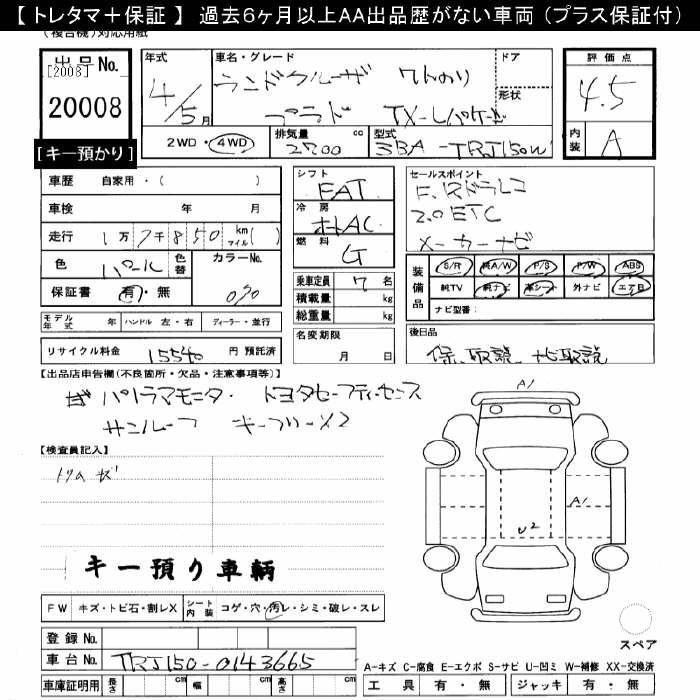 【 トレタマ＋保証 】 過去6ヶ月以上AA出品歴がない車両（プラス保証付）
(複合機)対応用紙
出品No.
[2008]
20008
[キー預かり]
年式
4/5月
車名・グレード
ランドクルーザ 7人のり
プラド TX-Lパケージ
ドア
形状
評価点
4.5
内装 A
2WD・4WD
排気量 2700 cc
型式 3BA-TRJ150W
車歴 自家用・( )
車検 年 月
走行 1万7千850 km マイル( )
色 パール 色替 カラーNo. 070
保証書 有・無
モデル年式 年 ハンドル 左・右 ディーラー・並行
リサイクル料金 15540 円 預託済
シフト FAT
冷房 オートAC
燃料 G
乗車定員 7 名
積載量 kg
総重量 kg
名変期限 月 日
セールスポイント
F.Rドラレコ
2.0 ETC
メーカーナビ
装備品 S/R 純A/W P/S P/W ABS
純TV 純ナビ 革シート 外ナビ エアB
ナビ型番：
後日品
保、取説、ナビ取説
【出品店申告欄(不良箇所・欠品・注意事項等)】
パノラマモニタ・ トヨタセーフティーセンス
サンルーフ キーフリーX2
【検査員記入】
トリム キズ
キー預り車輌
A1
A1
U2
FW キズ・トビ石・割レX シート内装 コゲ・穴・汚レ・シミ・破レ・スレ
スペア
登録No.
車台No. TRJ150-0143665
車庫証明用 長さ cm 幅 cm 高さ cm
A-キズ C-腐食 E-エクボ S-サビ U-凹ミ W-補修 XX-交換済
工具 有・無 ジャッキ 有・無